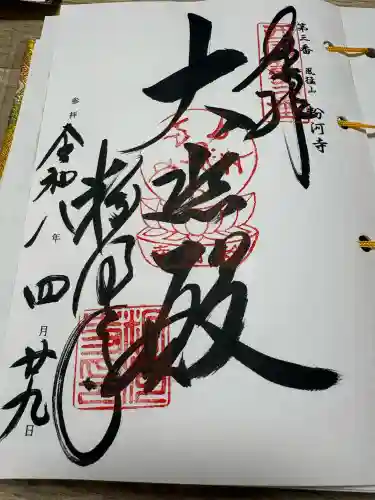 第三番 風猛山 粉河寺
奉拝
大悲殿
粉河寺
参拝
令和八年四月廿九日